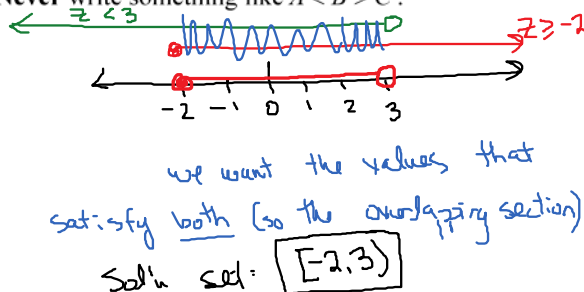 Never write something like A < B > C.
z < 3
z ≥ -2
-2 -1 0 1 2 3
we want the values that
satisfy both (so the overlapping section)
Sol'n set: [-2,3)